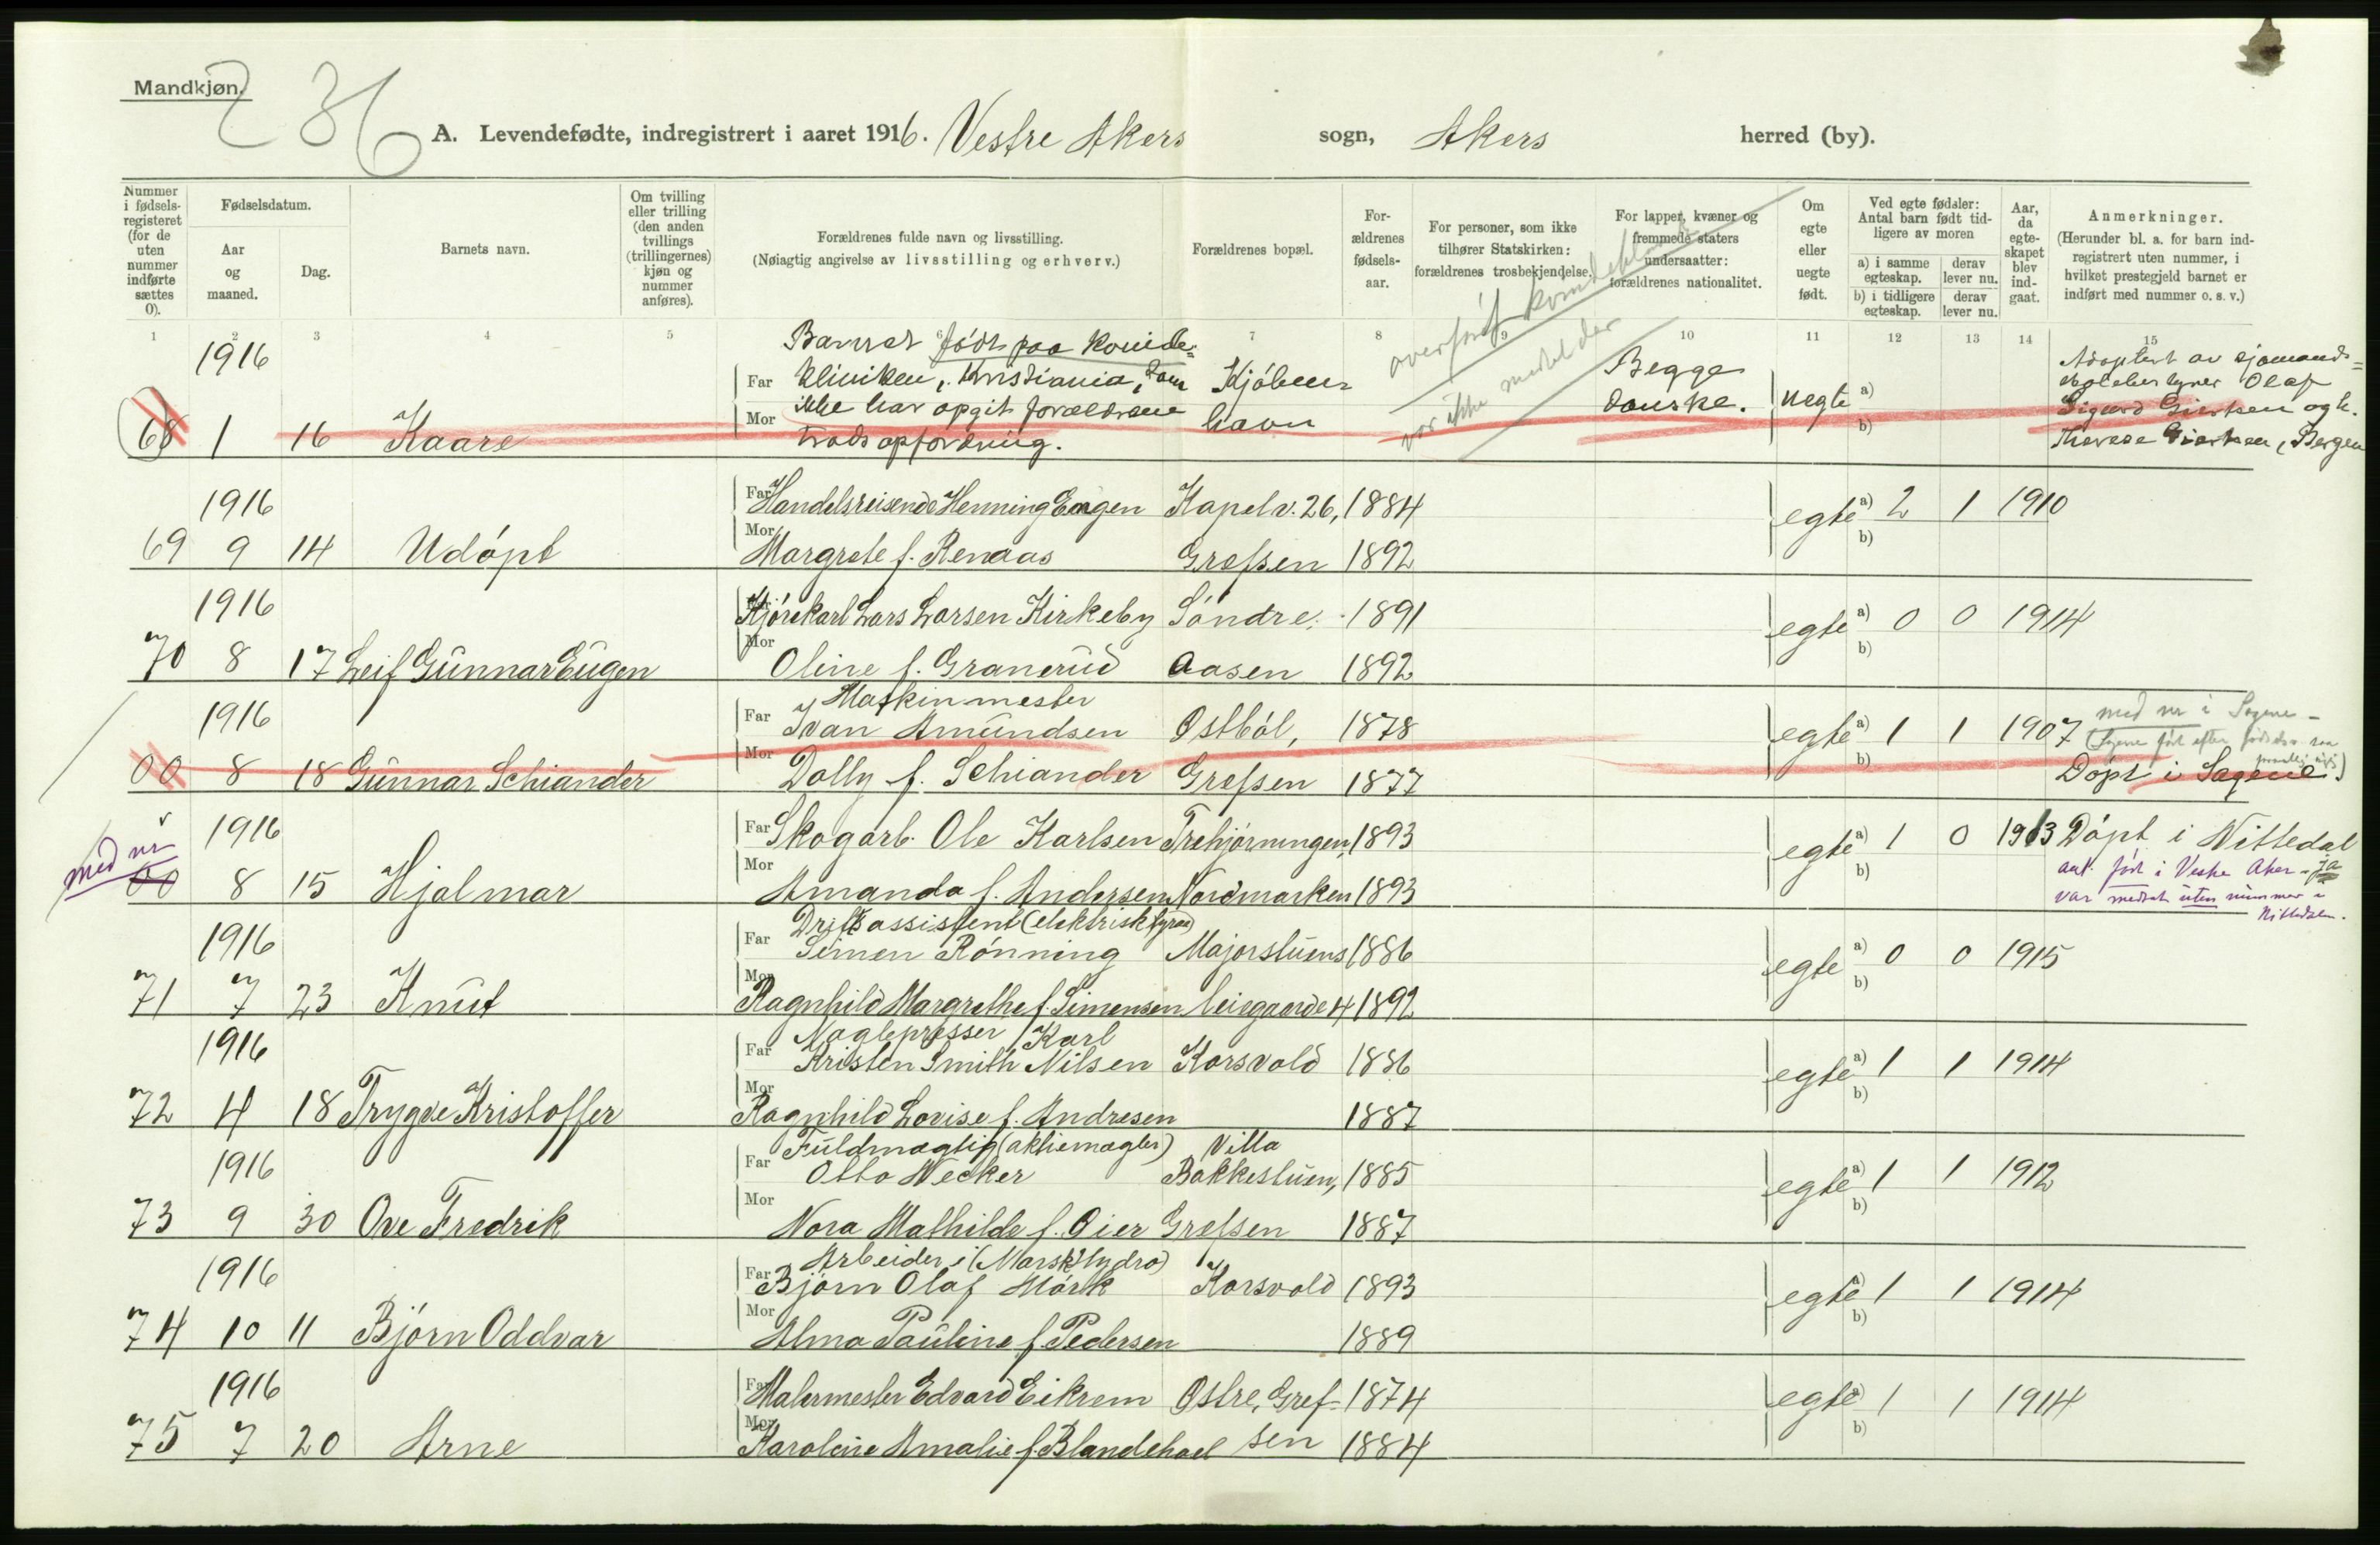 Mandkjøn.
236
A. Levendefødte, indregistrert i aaret 1916. Vestre Akers sogn, Akers herred (by).
Nummer i fødsels-registeret (for de uten nummer indførte sættes 0).
Fødselsdatum.
Aar og maaned.
Dag.
Barnets navn.
Om tvilling eller trilling (den anden tvillings (trillingernes) kjøn og nummer anføres).
Forældrenes fulde navn og livsstilling.
(Nøiagtig angivelse av livsstilling og erhverv.)
Forældrenes bopæl.
For-ældrenes fødsels-aar.
For personer, som ikke tilhører Statskirken: forældrenes trosbekjendelse.
For lapper, kvæner og fremmede staters undersaatter: forældrenes nationalitet.
Om egte eller uegte født.
Ved egte fødsler: Antal barn født tid-ligere av moren
a) i samme egteskap. derav lever nu.
b) i tidligere egteskap. derav lever nu.
Aar, da egte-skapet blev ind-gaat.
Anmerkninger.
(Herunder bl. a. for barn ind-registrert uten nummer, i hvilket prestegjeld barnet er indført med nummer o. s. v.)
1 2 3 4 5 6 7 8 9 10 11 12 13 14 15
overført
var ikke med
1916 Barnet født paa kvinde=
Far kliniken, Kristiania, som Kjøben= Begge
68 1 16 Kaare Mor ikke har opgit forældrene havn danske. uegte a) b)
trods opfordring.
Adoptert av sjømands=
Olaf
Sigurd Giertsen og h.
Therese Giertsen, Bergen
1916 Far Handelsreisende Henning Engen Kapelv. 26, 1884 egte a) 2 1 1910
69 9 14 Udøpt Mor Margrete f. Renaas Grefsen 1892 b)
1916 Kjørekarl Lars Larsen Kirkeby Søndre 1891 egte a) 0 0 1914
70 8 17 Leif Gunnar Eugen Mor Oline f. Granerud Aasen 1892 b)
Maskinmester
1916 Far Ivan Amundsen Østbøl, 1878 egte a) 1 1 1907 med nr i Sagene -
00 8 18 Gunnar Schiander Mor Dolly f. Schiander Grefsen 1877 b) Døpt i Sagene
med nr
1916 Far Skogarb. Ole Karlsen Trehjørningen, 1893 egte a) 1 0 1913 Døpt i Nittedal
00 8 15 Hjalmar Mor Amanda f. Andersen Nordmarken 1893 b) ant. født i Vestre Aker - ja
var medtat uten nummer i
Nittedalen.
Driftsassistent (elektrisk
1916 Far Simen Rønning Majorstuens 1886 egte a) 0 0 1915
71 7 23 Knut Mor Ragnhild Margrethe f. Simensen leiegaarde 4 1892 b)
Naglepresser Karl
1916 Far Kristen Smith Nilsen Korsvold 1886 egte a) 1 1 1914
72 4 18 Trygve Kristoffer Mor Ragnhild Lovise f. Andresen 1887 b)
Fuldmægtig (aktiemægler) Villa
1916 Far Otto Wecker Bakkestuen, 1885 egte a) 1 1 1912
73 9 30 Ove Fredrik Mor Nora Mathilde f. Oier Grefsen 1887 b)
Arbeider i (Norsk Hydro)
1916 Far Bjørn Olaf Mørk Korsvold 1893 egte a) 1 1 1914
74 10 11 Bjørn Oddvar Mor Alma Pauline f. Pedersen 1889 b)
1916 Far Malermester Edvard Eikrem Østre, Gref- 1874 egte a) 1 1 1914
75 7 20 Arne Mor Karoline Amalie f. Blandehoel sen 1884 b)